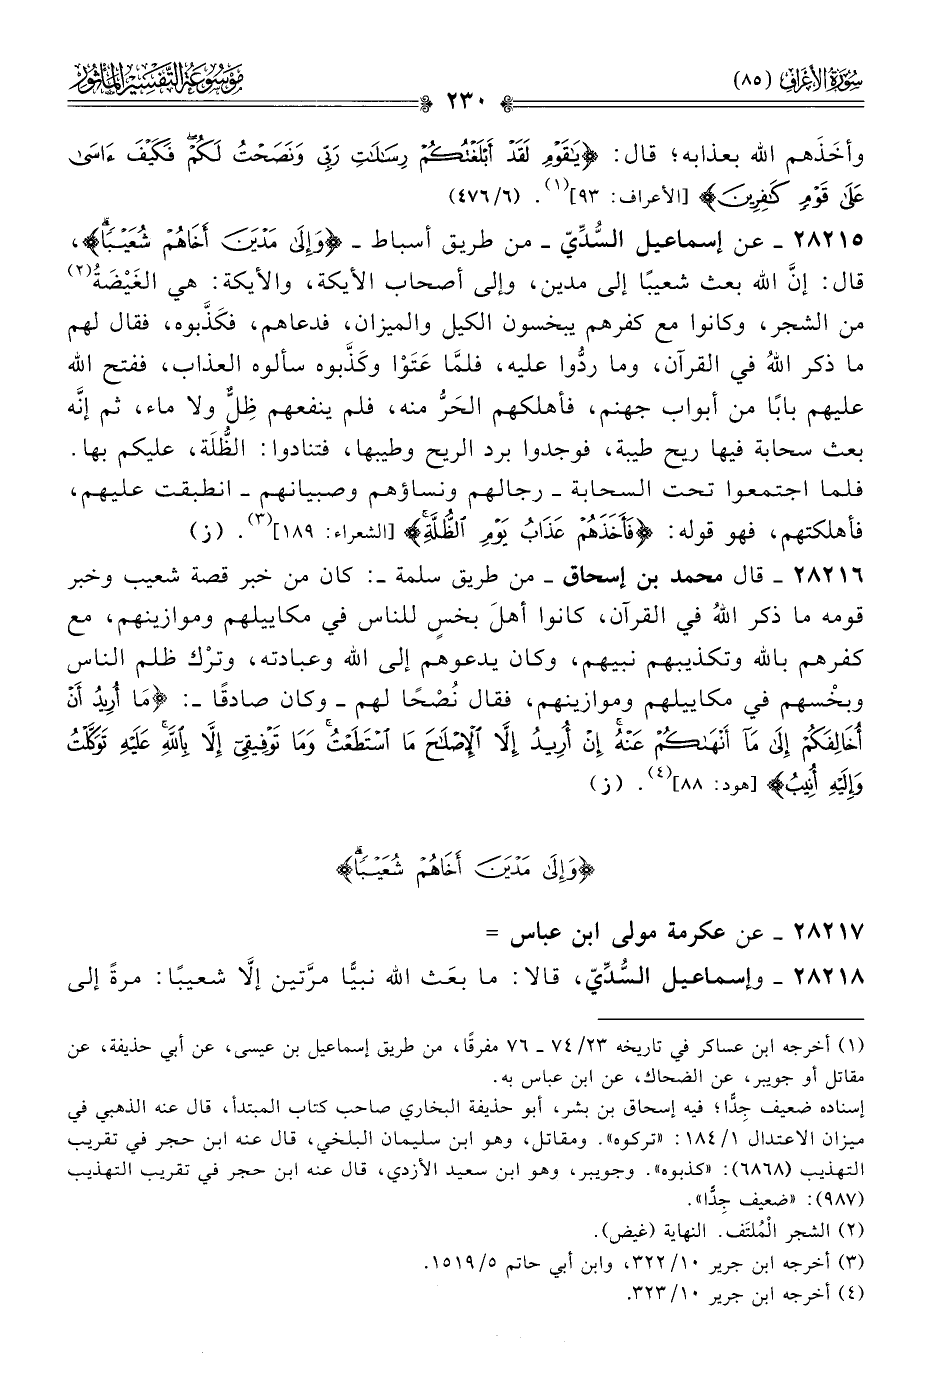 سورة الأعراف (٨٥)
موسوعة التفسير المأثور
٢٣٠
وأخذهم الله بعذابه؛ قال: ﴿يَٰقَوۡمِ لَقَدۡ أَبۡلَغۡتُكُمۡ رِسَٰلَٰتِ رَبِّي وَنَصَحۡتُ لَكُمۡۖ فَكَيۡفَ ءَاسَىٰ
عَلَىٰ قَوۡمٖ كَٰفِرِينَ﴾ [الأعراف: ٩٣](١). (٤٧٦/٦)
٢٨٢١٥ ـ عن إسماعيل السُّدِّيّ ـ من طريق أسباط ـ ﴿وَإِلَىٰ مَدۡيَنَ أَخَاهُمۡ شُعَيۡبٗاۚ﴾،
قال: إنَّ الله بعث شعيبًا إلى مدين، وإلى أصحاب الأيكة، والأيكة: هي الغَيْضَةُ(٢)
من الشجر، وكانوا مع كفرهم يبخسون الكيل والميزان، فدعاهم، فكَذَّبوه، فقال لهم
ما ذكر اللهُ في القرآن، وما ردُّوا عليه، فلمَّا عَتَوْا وكَذَّبوه سألوه العذاب، ففتح الله
عليهم بابًا من أبواب جهنم، فأهلكهم الحَرُّ منه، فلم ينفعهم ظِلٌّ ولا ماء، ثم إنَّه
بعث سحابة فيها ريح طيبة، فوجدوا برد الريح وطيبها، فتنادوا: الظُّلَة، عليكم بها.
فلما اجتمعوا تحت السحابة ـ رجالهم ونساؤهم وصبيانهم ـ انطبقت عليهم،
فأهلكتهم، فهو قوله: ﴿فَأَخَذَهُمۡ عَذَابُ يَوۡمِ ٱلظُّلَّةِۚ﴾ [الشعراء: ١٨٩](٣). (ز)
٢٨٢١٦ ـ قال محمد بن إسحاق ـ من طريق سلمة ـ: كان من خبر قصة شعيب وخبر
قومه ما ذكر اللهُ في القرآن، كانوا أهلَ بخسٍ للناس في مكاييلهم وموازينهم، مع
كفرهم بالله وتكذيبهم نبيهم، وكان يدعوهم إلى الله وعبادته، وترْك ظلم الناس
وبخْسهم في مكاييلهم وموازينهم، فقال نُصْحًا لهم ـ وكان صادقًا ـ: ﴿مَا أُرِيدُ أَنۡ
أُخَالِفَكُمۡ إِلَىٰ مَآ أَنۡهَىٰكُمۡ عَنۡهُۚ إِنۡ أُرِيدُ إِلَّا ٱلۡإِصۡلَٰحَ مَا ٱسۡتَطَعۡتُۚ وَمَا تَوۡفِيقِيٓ إِلَّا بِٱللَّهِۚ عَلَيۡهِ تَوَكَّلۡتُ
وَإِلَيۡهِ أُنِيبُ﴾ [هود: ٨٨](٤). (ز)
﴿وَإِلَىٰ مَدۡيَنَ أَخَاهُمۡ شُعَيۡبٗاۚ﴾
٢٨٢١٧ ـ عن عكرمة مولى ابن عباس =
٢٨٢١٨ ـ وإسماعيل السُّدِّيّ، قالا: ما بعَث الله نبيًّا مرَّتين إلَّا شعيبًا: مرةً إلى
(١) أخرجه ابن عساكر في تاريخه ٢٣/ ٧٤ ـ ٧٦ مفرقًا، من طريق إسماعيل بن عيسى، عن أبي حذيفة، عن
مقاتل أو جويبر، عن الضحاك، عن ابن عباس به.
إسناده ضعيف جِدًّا؛ فيه إسحاق بن بشر، أبو حذيفة البخاري صاحب كتاب المبتدأ، قال عنه الذهبي في
ميزان الاعتدال ١/ ١٨٤: «تركوه». ومقاتل، وهو ابن سليمان البلخي، قال عنه ابن حجر في تقريب
التهذيب (٦٨٦٨): «كذبوه». وجويبر، وهو ابن سعيد الأزدي، قال عنه ابن حجر في تقريب التهذيب
(٩٨٧): «ضعيف جِدًّا».
(٢) الشجر الْمُلتَف. النهاية (غيض).
(٣) أخرجه ابن جرير ١٠/ ٣٢٢، وابن أبي حاتم ٥/ ١٥١٩.
(٤) أخرجه ابن جرير ١٠/ ٣٢٣.